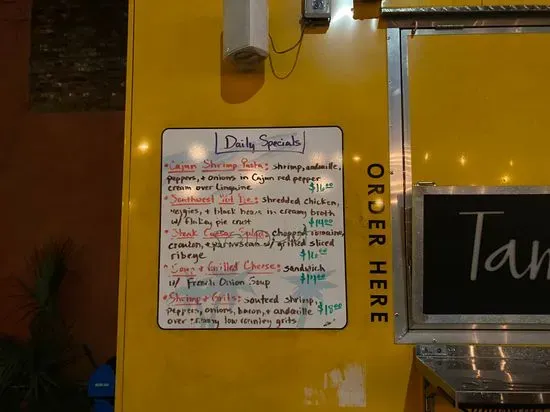 Daily Specials
• Cajun Shrimp Pasta: shrimp, andouille,
peppers, + onions in Cajun red pepper
cream over linguine $16.00
• Southwest Pot Pie: shredded chicken,
veggies, + black beans in creamy broth
w/ flakey pie crust $14.00
• Steak Caesar Salad: chopped romaine,
crouton, + parmesean w/ grilled sliced
ribeye $16.00
• Soup + Grilled Cheese: sandwich
w/ French Onion Soup
• Shrimp + Grits: sauteed shrimp,
peppers, onions, bacon, + andouille $18.00
over creamy low country grits
ORDER HERE
Tam